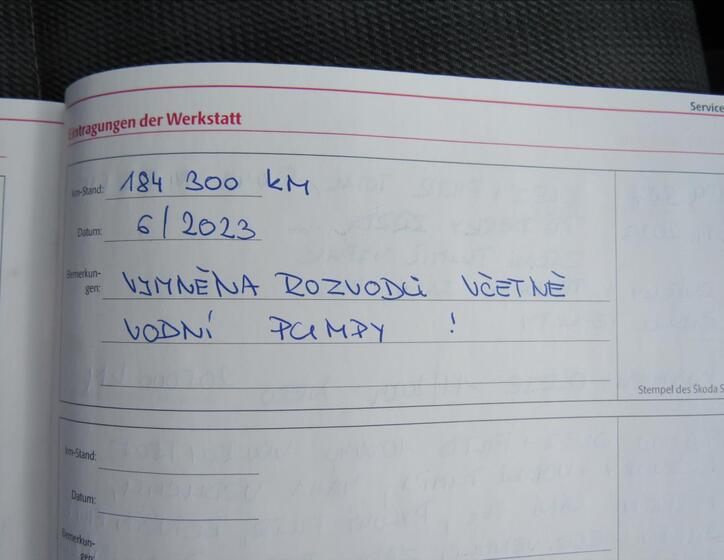 Service
Eintragungen der Werkstatt
km-Stand: 184 300 KM
Datum: 6/2023
Bemerkun-
gen: VÝMNĚNA ROZVODŮ VČETNĚ
VODNÍ PUMPY !
Stempel des Škoda S
km-Stand:
Datum:
Bemerkun-
gen: